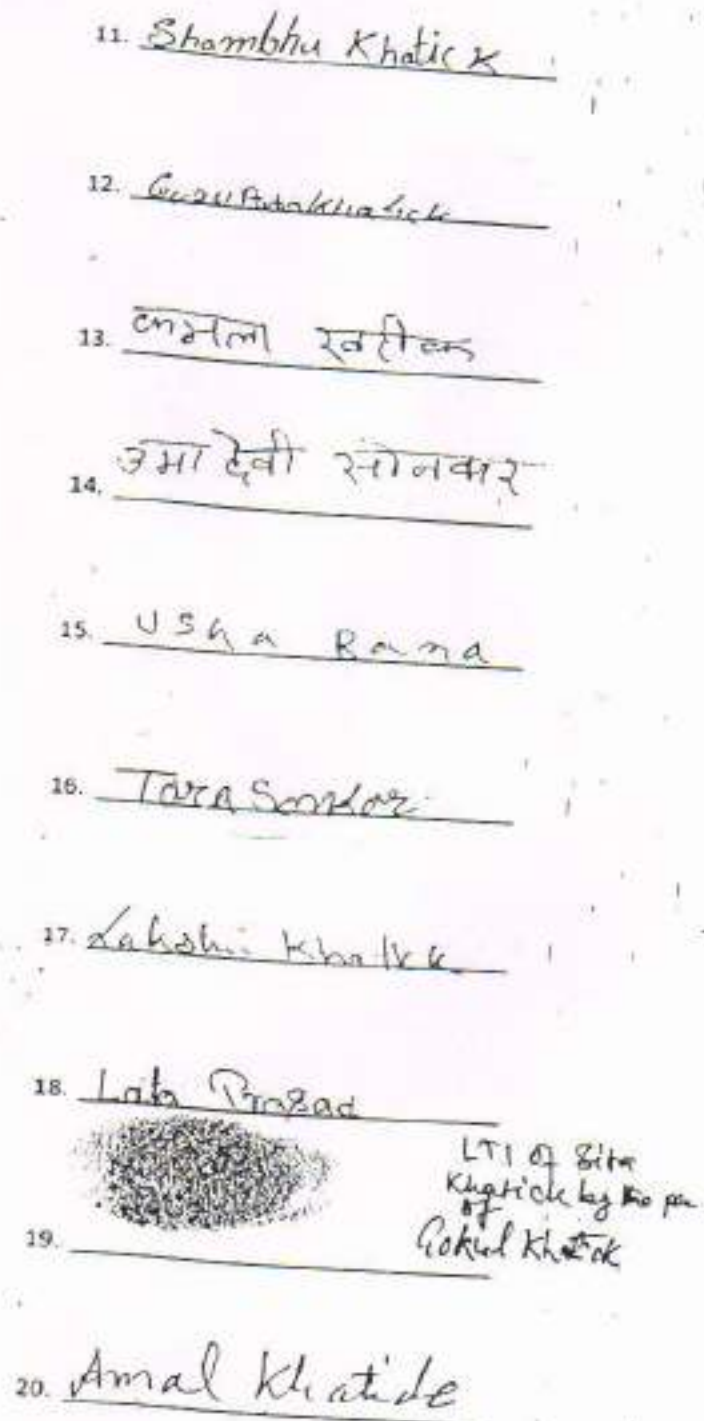 11. Shambhu Khatick
12. Khatick
13. कमला खटीक
14. उमा देवी सोनकर
15. Usha Rama
16. Tara Sonkar
17. Lakshmi Khatick
18. Lata Prasad
LTI of Sita
Khatick by the pen
of
19. Gokul Khatick
20. Amal Khatick